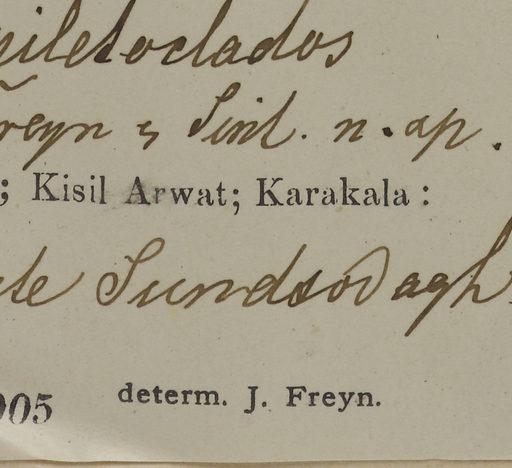 Freyn & Sint. n. sp.
; Kisil Arwat; Karakala:
Sundsodagh
905
determ. J. Freyn.